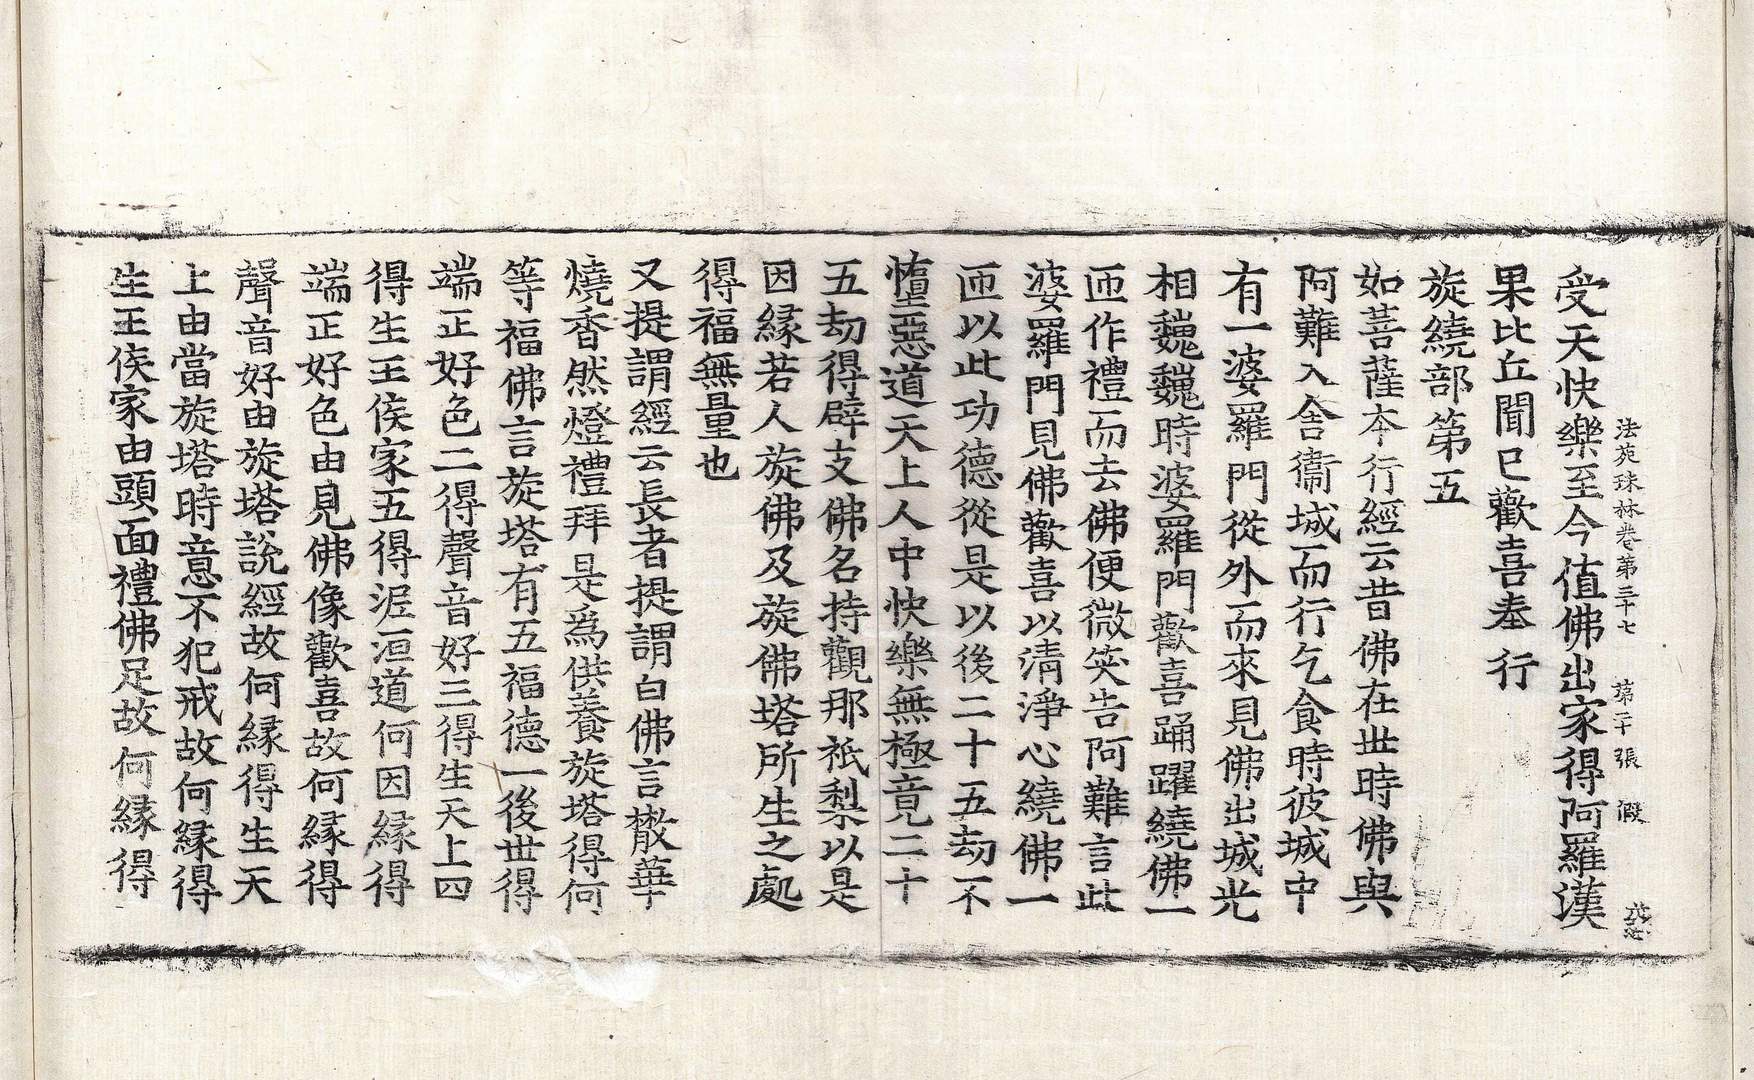 法苑珠林卷第三十七　第二十張　假
受天快樂至今值佛出家得阿羅漢
果比丘聞已歡喜奉行
旋繞部第五
如菩薩本行經云昔佛在世時佛與
阿難入舍衞城而行乞食時彼城中
有一婆羅門從外而來見佛出城光
相巍巍時婆羅門歡喜踊躍繞佛一
匝作禮而去佛便微笑告阿難言此
婆羅門見佛歡喜以清淨心繞佛一
匝以此功德從是以後二十五劫不
墮惡道天上人中快樂無極竟二十
五劫得辟支佛名持觀那祇梨以是
因緣若人旋佛及旋佛塔所生之處
得福無量也
又提謂經云長者提謂白佛言散華
燒香然燈禮拜是爲供養旋塔得何
等福佛言旋塔有五福德一後世得
端正好色二得聲音好三得生天上四
得生王侯家五得泥洹道何因緣得
端正好色由見佛像歡喜故何緣得
聲音好由旋塔說經故何緣得生天
上由當旋塔時意不犯戒故何緣得
生王侯家由頭面禮佛足故何緣得